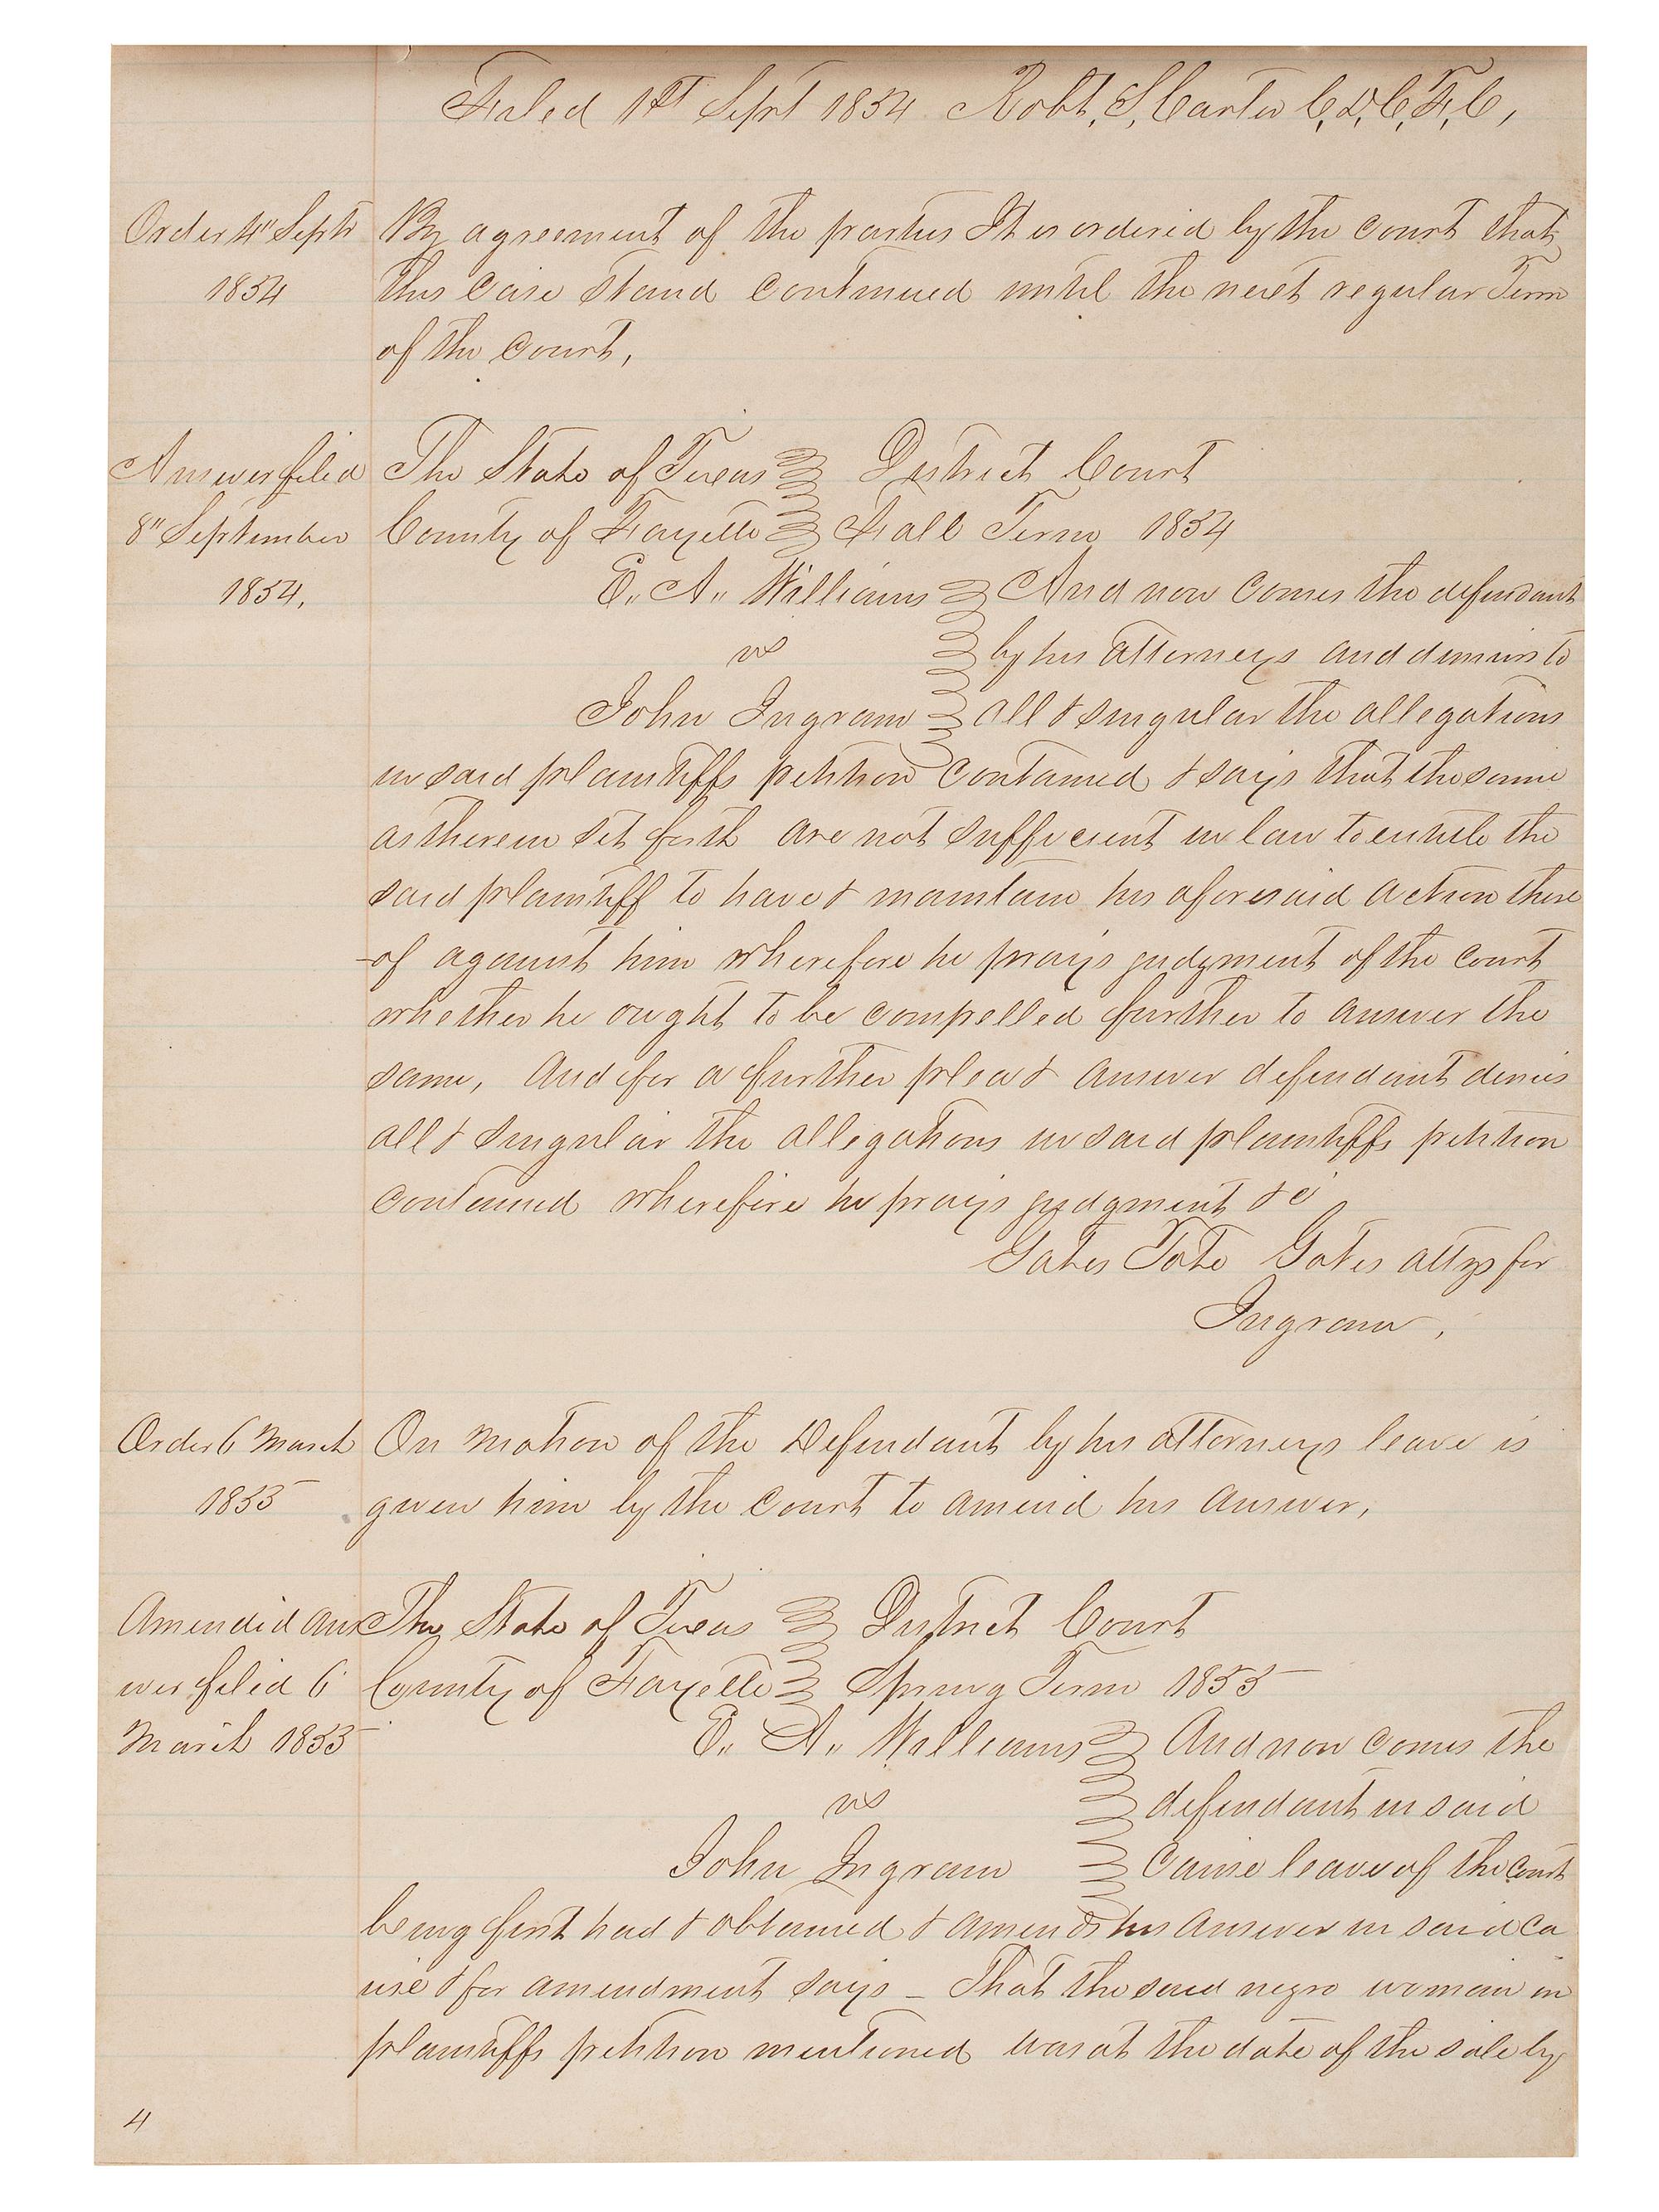 Filed 1st Sept 1854 Robt, S, Carter C, D, C, F, C,
Order 4" Sept
1854
By agreement of the parties It is ordered by the court that
this case stand continued until the next regular Term
of the court,
Answer filed
8" September
1854,
The State of Texas District Court
County of Fayette Fall Term 1854
E,, A,, Williams And now comes the defendant
vs by his attorneys and demurs to
John Ingram all & singular the allegations
in said plaintiffs petition contained & says that the same
as therein set forth are not sufficient in law to entitle the
said plaintiff to have & maintain his aforesaid action there
-of against him wherefore he prays judgment of the court
whether he ought to be compelled further to answer the
same, And for a further plea & answer defendant denies
all & singular the allegations in said plaintiffs petition
contained wherefore he prays judgment &c
Gates Tate Gates attys for
Ingram,
Order 6 March
1855
On motion of the Defendant by his attorneys leave is
given him by the court to amend his answer,
Amended ans
wer filed 6
March 1855
The State of Texas District Court
County of Fayette Spring Term 1855
E,, A,, Williams And now comes the
vs defendant in said
John Ingram cause leave of the court
being first had & obtained & amends his answer in said ca
use & for amendment says – That the said negro woman in
plaintiffs petition mentioned was at the date of the sale by
4